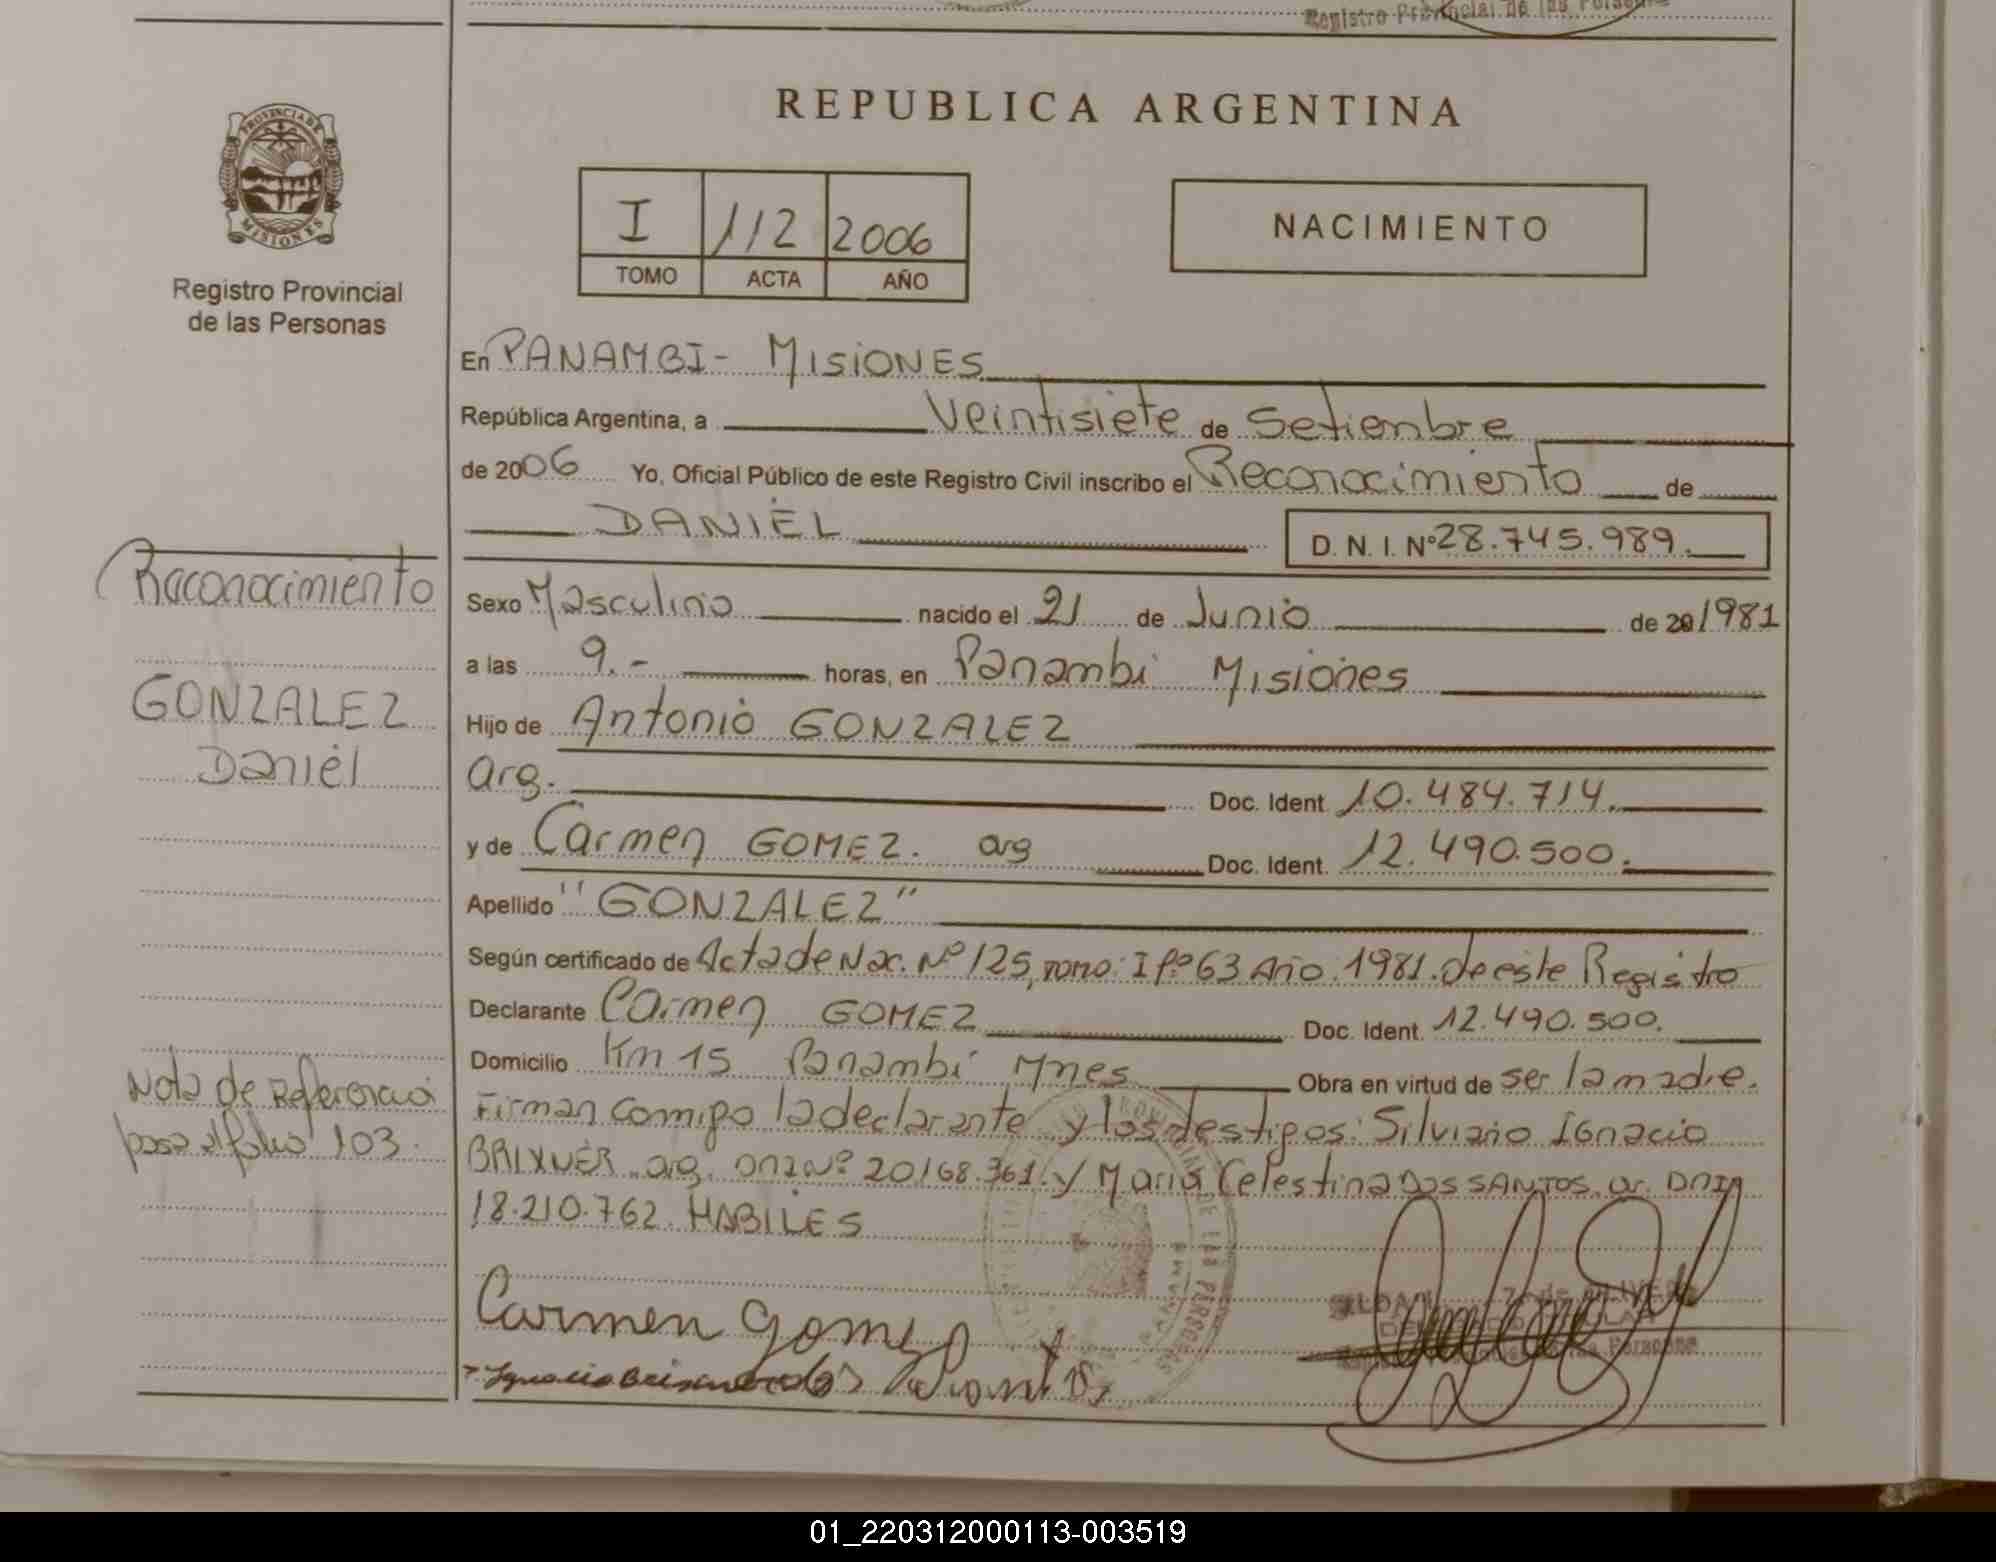 Registro Provincial de las Personas
REPUBLICA ARGENTINA
PROVINCIA DE
MISIONES
Registro Provincial
de las Personas
I 112 2006
TOMO ACTA AÑO
NACIMIENTO
En PANAMBI - MISIONES
República Argentina, a Veintisiete de Setiembre
de 2006 Yo, Oficial Público de este Registro Civil inscribo el Reconocimiento de
DANIEL D. N. I. Nº 28.745.989.
Reconocimiento
GONZALEZ
Daniel
Sexo Masculino nacido el 21 de Junio de 20 1981
a las 9.- horas, en Panambi Misiones
Hijo de Antonio GONZALEZ
arg. Doc. Ident. 10.484.714.
y de Carmen GOMEZ. arg Doc. Ident. 12.490.500.
Apellido "GONZALEZ"
Según certificado de Acta de Nac. Nº 125, Tomo: I Fº 63 Año: 1981. de este Registro
Declarante Carmen GOMEZ Doc. Ident. 12.490.500.
Domicilio Km 15 Panambi Mnes Obra en virtud de ser la madre.
Nota de Referencia
pasa al folio 103.
Firman comigo la declarante y los testigos: Silviano Ignacio
BRIXNER. arg. DNI Nº 20168.361. y Maria Celestina DOS SANTOS. ar. DNI
18.210.762. HABILES
Carmen Gomez
01_220312000113-003519